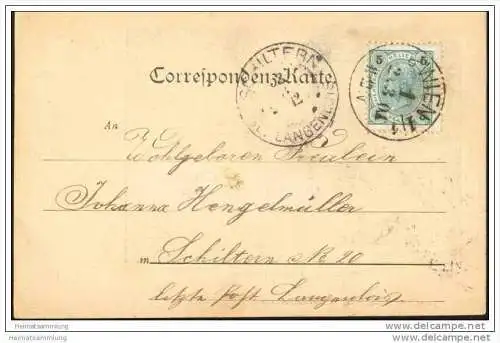 Correspondenz-Karte
SCHILTERN
LANGENLOIS
WIEN
An
Wohlgeboren Fräulein
Johanna Hengelmüller
in Schiltern № 20
letzte Post Langenlois
Heimatsammlung
Heimatsammlung.com
delcampe.net